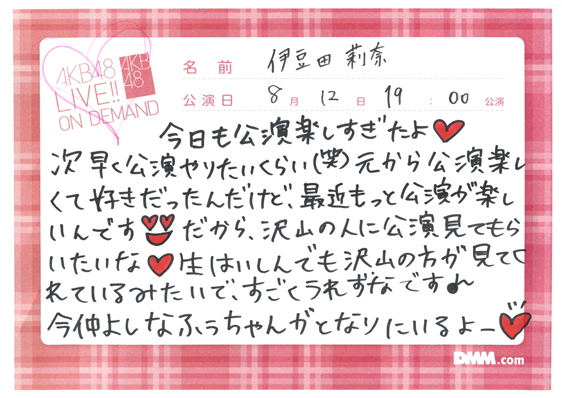 AKB48
LIVE!!
ON DEMAND
AKB
48
名前 伊豆田 莉奈
公演日 8月 12日 19:00 公演
今日も公演楽しすぎたよ❤
次早く公演やりたいくらい(笑)元から公演楽し
くて好きだったんだけど、最近もっと公演が楽し
いんです だから、沢山の人に公演見てもら
いたいな❤生はいしんでも沢山の方が見てく
れているみたいで、すごくうれずなです♪
今仲よしなふぅちゃんがとなりにいるよー❤
DMM.com